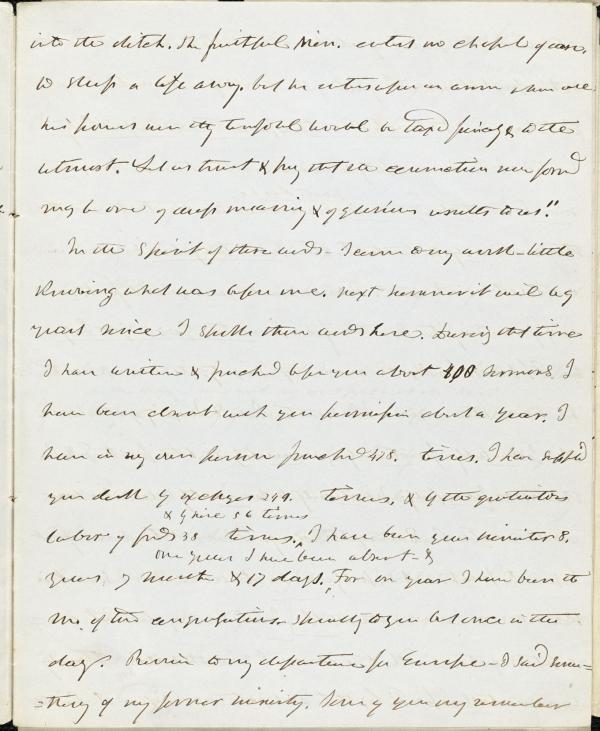 into the ditch. The faithful Min. enters no chapel of ease,
to sleep a life away. but he enters upon an arena where all
his powers will be tax'd to the
utmost. "Let us trust & pray that the connection now form'd
may be one of deep meaning & of glorious results to us!"
In the spirit of these words I came to my work - little
knowing what was before me. next summer it will be 9
years since I spoke these words here. During that time
I have written & preached before you about 400 sermons. I
have been absent with your permission about a year. I
have in my own person preached 478. times. I have supplied
your desk by exchanges 249. times, & by the gratuitous
& by hire 56 times
labor of friends 38 times. I have been your minister 8.
one year I have been absent - &
years 7 months & 17 days, For one year I have been to
one of two congregations - speaking to you but once in the
day. Previous to my departure for Europe - I said some-
=thing of my former ministry. Some of you may remember